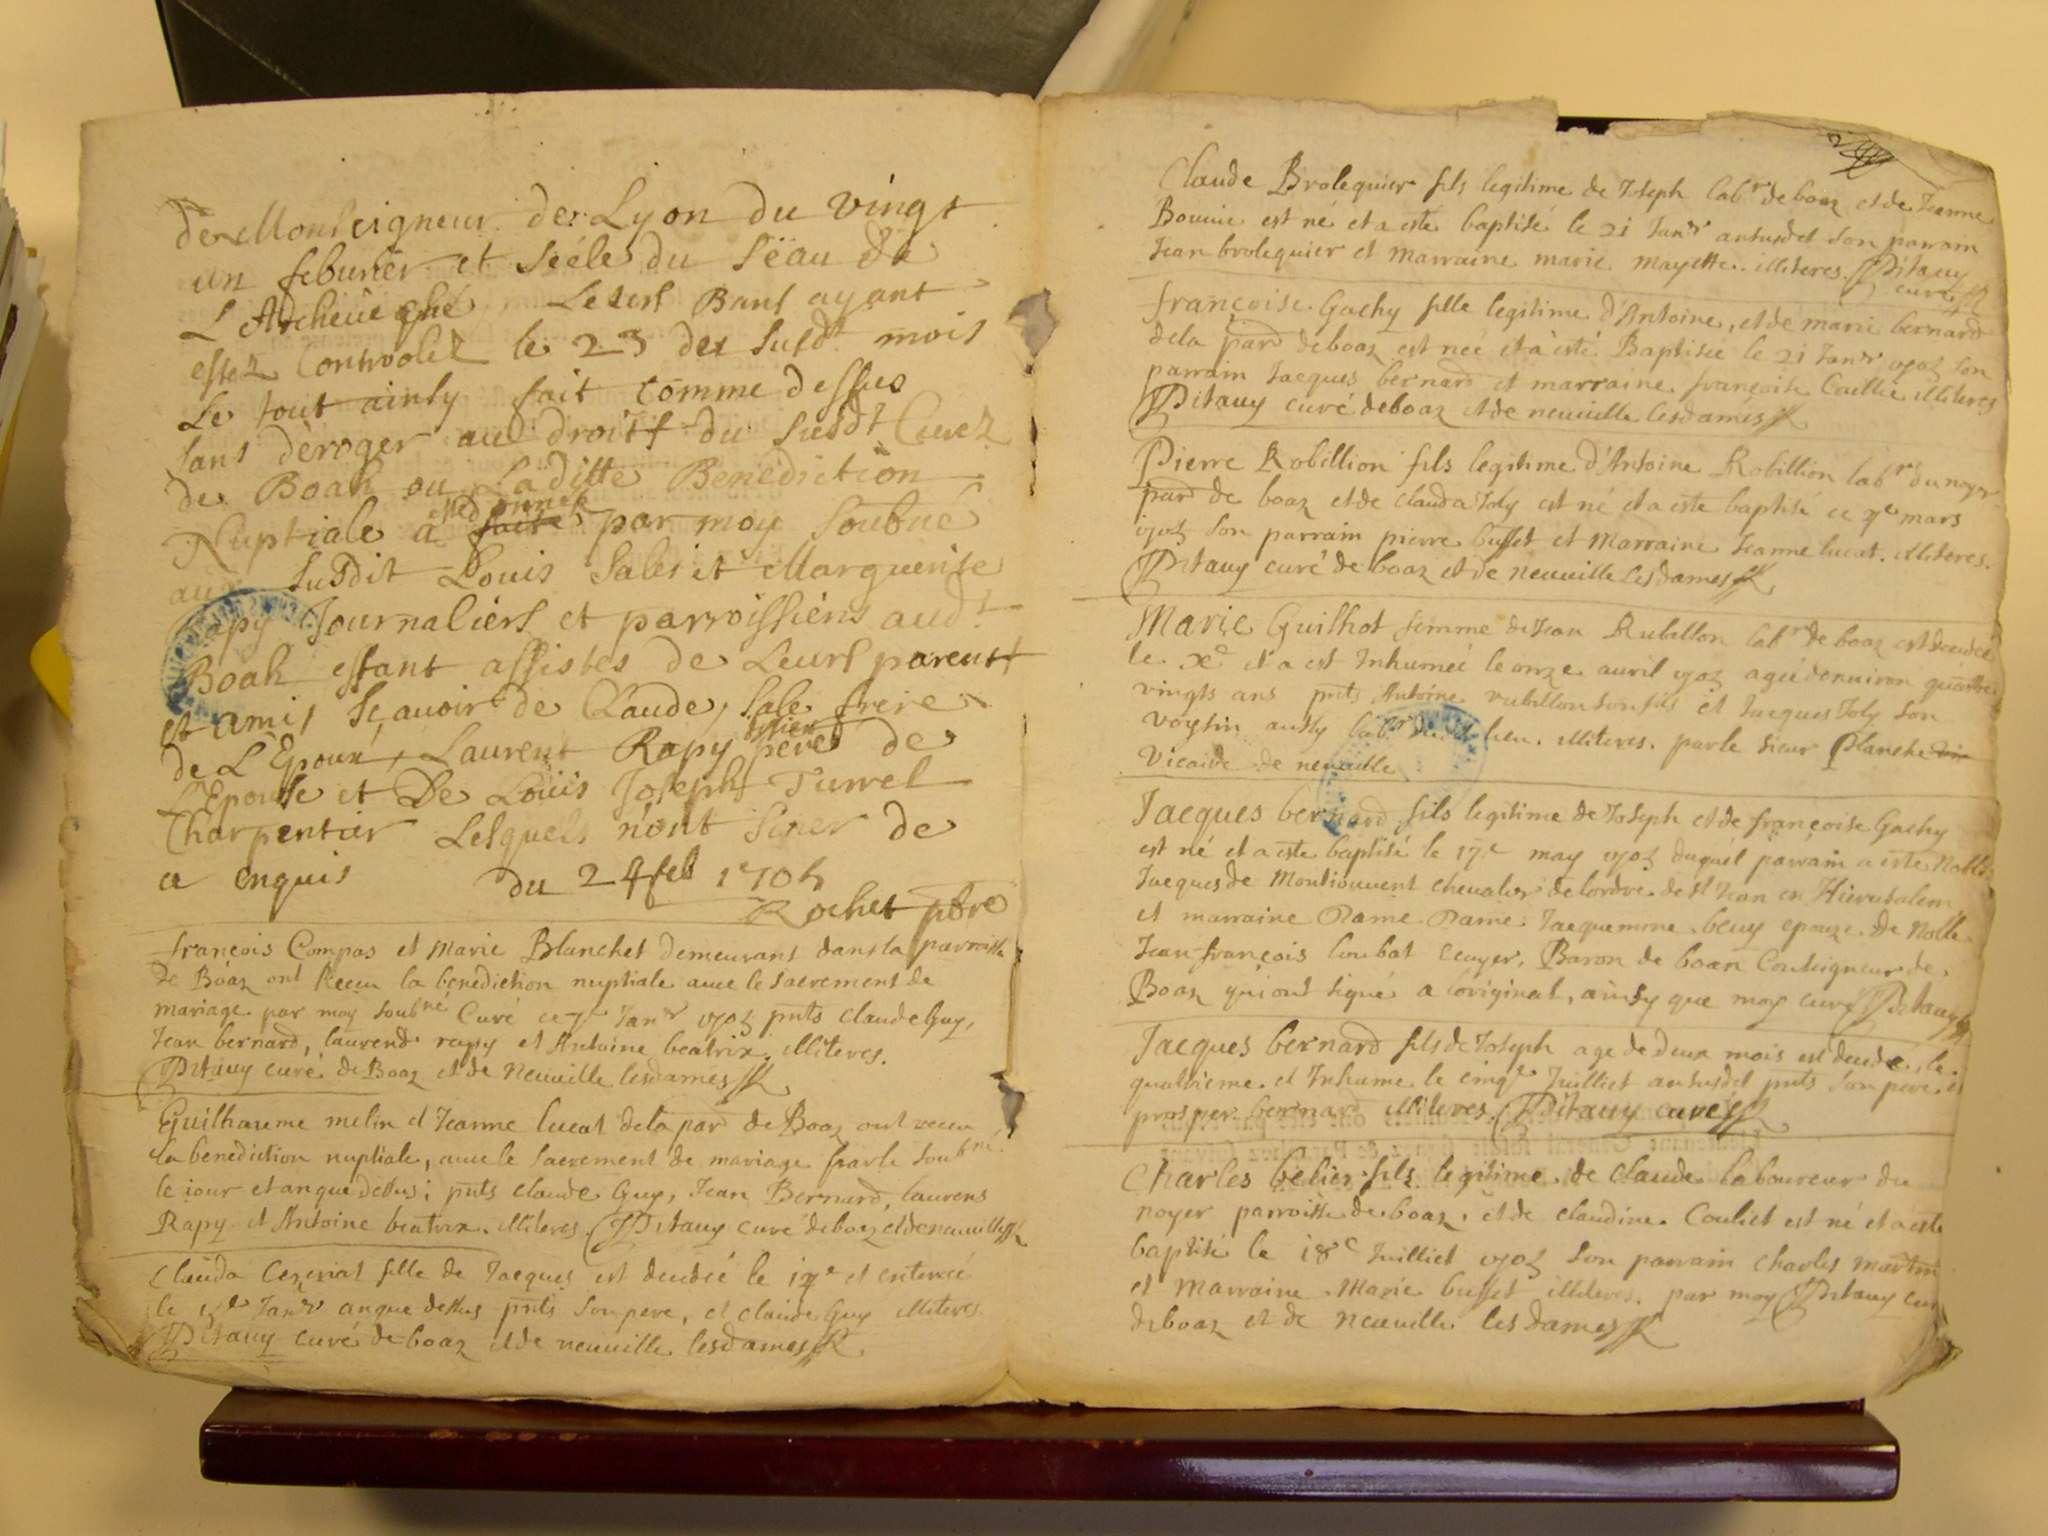 de Monseigneur de Lyon du vingt
un feburier et Séélé du Séau de
L'Archeuéché, Lesest Bans ayant
estez Controolez le 23 des susdt mois
Le tout ainsy fait comme dessus
sans déroger aux droits du susdt Curez
de Boah ou Laditte Benediction
Nuptiale a esté donnée par moy soubné
aux susdit Louis Sales et Marguerite
Rapy Journaliérs et parroissiéns audt
Boah estant assistes de Leurs parents
et amis Sçauoir de Claude Sale frere
de L'Epoux, Laurent Rapy pere de
L'Epouse et De Loüis Joseph Turrel
Charpentier Lesquels n'ont siner de
ce enquis du 24 feb 1705
Rochet pbre
françois Compas et Marie Blanchet demeurant dans la parroisse
de Boaz ont Receu la benediction nuptiale auec le sacrement de
mariage par moy soubné Curé ce 7e Janr 1705 pnts claude Guy,
Jean bernard, laurend rapy et Antoine beatrix illiteres.
Pitauy curé de Boaz et de Neuuille les dames
Guilhaume melin et Jeanne lucat de la pard de Boaz ont receu
la benediction nuptiale, auec le sacrement de mariage par le soubné
le iour et an que dessus; pnts claude Guy, Jean Bernard, laurens
Rapy et Antoine beatrix. illiteres. Pitauy curé de boaz et de neuuille
Clauda Cezeriat fille de Jacques est decedée le et enterrée
le Janr an que dessus pnts son pere, et claude Guy illiteres.
Pitauy curé de boaz et de neuuille les dames
Claude Brolequier fils legitime de Joseph labr de boaz et de Jeanne
Bouuie est né et a esté baptisé le 21 Janr an susdt son parrain
Jean brolequier et marraine marie mayette illiteres. Pitauy
curé
françoise Gachy fille legitime d'Antoine, et de marie bernard
de la pard de boaz est née et a esté Baptisée le 21 Janr 1705 son
parrain Jacques bernard et marraine françoise Caillie illiteres
Pitauy curé de boaz et de neuuille les dames
Pierre Robillion fils legitime d'Antoine Robillion labr du noyer
pard de boaz et de clauda Joly est né et a esté baptisé ce 7e mars
1705 son parrain pierre buffet et Marraine Jeanne lucat. illiteres.
Pitauy curé de boaz et de neuuille les dames
Marie Guilhot femme de Jean Rubillon labr de boaz est decedée
le Xe et a est Inhumée le onze auril 1705 agée denuiron quattre
vingts ans pnts Antoine rubillon son fils et Jacques Joly son
voysin aussy labr dudt lieu. illiteres. par le sieur Planche
Vicaire de neuuille
Jacques bernard fils legitime de Joseph et de françoise Gachy
est né et a esté baptisé le 17e may 1705 duquel parrain a esté Noble
Jacques de Montiouuent cheualier de lordre de st Jean en Hierusalem
et marraine Dame Dame Jacquemine beuy epouze de Noble
Jean françois loubat ecuyer, Baron de boan Conseigneur de
Boaz qui ont signé a loriginal, ainsy que moy curé Pitauy
Jacques bernard fils de Joseph age de deux mois est decedé, le
quatrieme et Inhumé le cinqe Juilliet an susdt pnts son pere et
prosper bernard illiteres. Pitauy curé
Charles belier fils legitime de claude laboureur du
noyer parroisse de boaz, et de claudine Couliet est né et a esté
baptisé le 18e Juilliet 1705 son parrain charles martin
et Marraine Marie buffet illiteres. par moy Pitauy cur
de boaz et de neuuille les dames